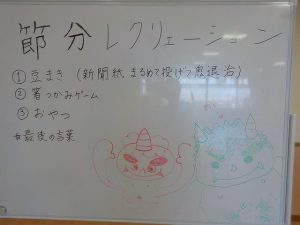 節分レクリェーション
①豆まき (新聞紙まるめて投げて鬼退治)
②箸つかみゲーム
③おやつ
☆最後の言葉